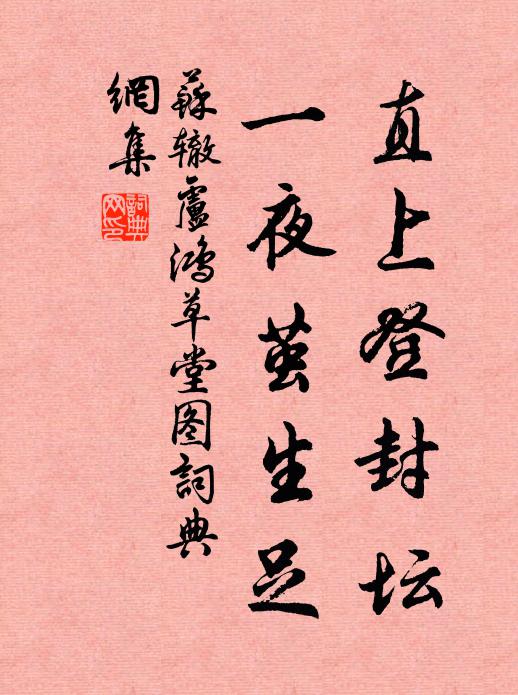 直上登封坛
一夜茧生足
蘇辙盧鴻草堂图詞典
網集
詞典
网印